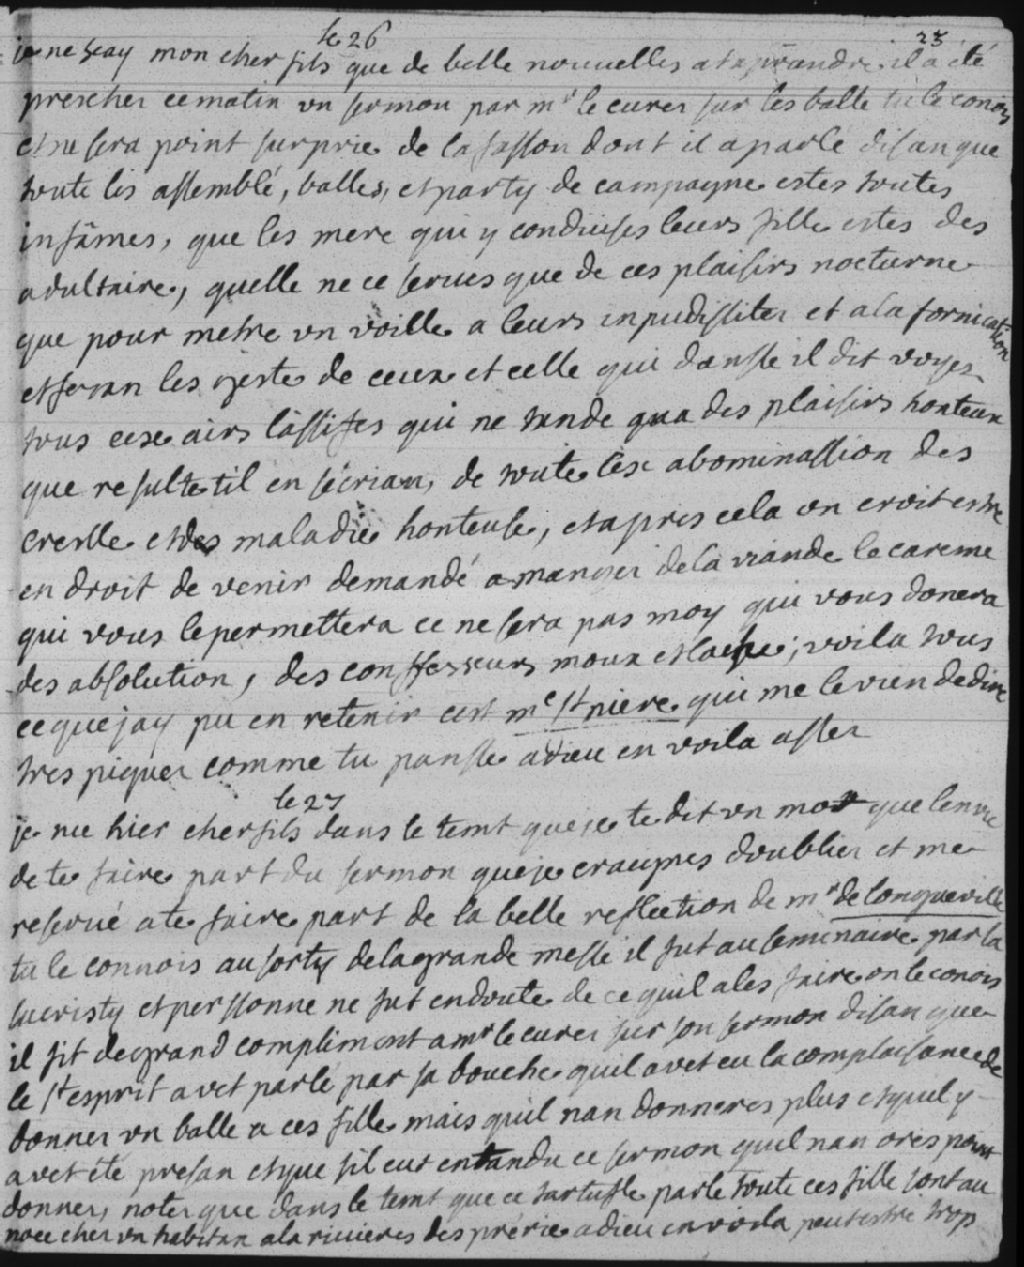 le 26
23
je ne scay mon cher fils que de belle nouuelles a taprandre il a eté
prescher ce matin un sermon par mr le curer sur les balle tu le conois
et ne sera point surprie de la fasson dont il a parlé disan que
toute les assemblé, balles, et party de campagne estes toutes
infâmes, que les mere qui y condeuises leurs fille estes des
adultaire, quelle ne ce serues que de ces plaisirs nocturne
que pour metre un voille a leurs inpudissiter et a la fornication
et feran les geste de ceux et celle qui dansse il dit voyes
tous cese airs lassifses qui ne tande qua des plaisirs honteux
que resulte til en sécrian, de toute cese abominassion des
creville et des maladie honteuse, et apres cela on croit estre
en droit de venir demandé a manger de la viande le careme
qui vous le permettera ce ne sera pas moy qui vous donera
des absolution, des conffesseurs moux et lache; voila tous
ce que jay pu en retenir cest me st piere qui me le vien de dire
tres piquer comme tu pansse adieu en voila asser
le 27
je nue hier cher fils dans le temt que je te dit un mot que lenvie
de te faire part du sermon que je craignes doublier et me
reservé a te faire part de la belle reflection de mr de longueville
tu le connois au sorty de la grande messe il fut au seminaire par la
sacristy et perssonne ne fut en doute de ce quil ales faire on le conois
il fit de grand compliment a mr le curer sur son sermon disan que
le st esprit avet parlé par sa bouche quil avet eu la complaisance de
donner un balle a ces fille mais quil nan donneres plus et quil y
avet été presan et que sil eut entandu ce sermon quil nan ores point
donner, noter que dans le temt que ce tartuffe parle toute ces fille sont au
noce cher un habitan a la riuieres des prérie adieu en voila peutestre trop